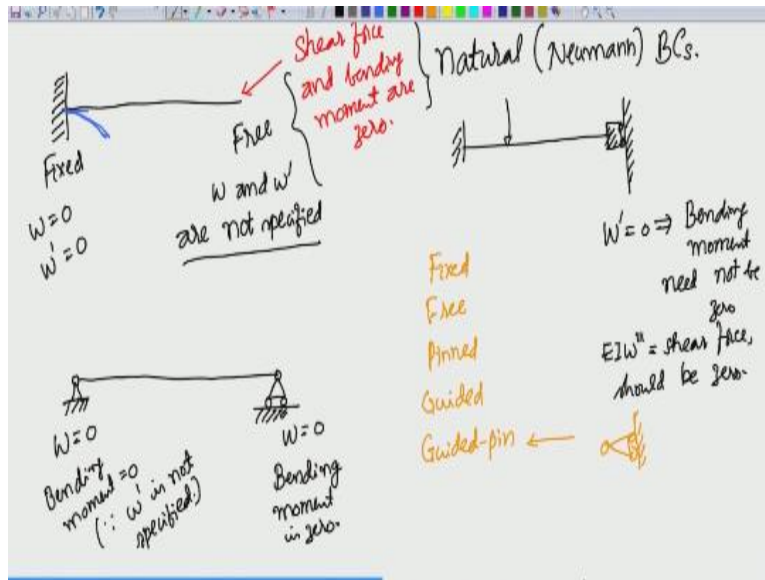 Shear force
and bending
moment are
zero.
natural (Neumann) BCs.
Fixed
w=0
w'=0
Free
w and w'
are not specified
w'=0 ⇒ Bending
moment
need not be
zero
EIw''' = shear force,
should be zero.
Fixed
Free
Pinned
Guided
Guided-pin ←
w=0
Bending
moment =0
(∵ w' is not
specified.)
w=0
Bending
moment
is zero.